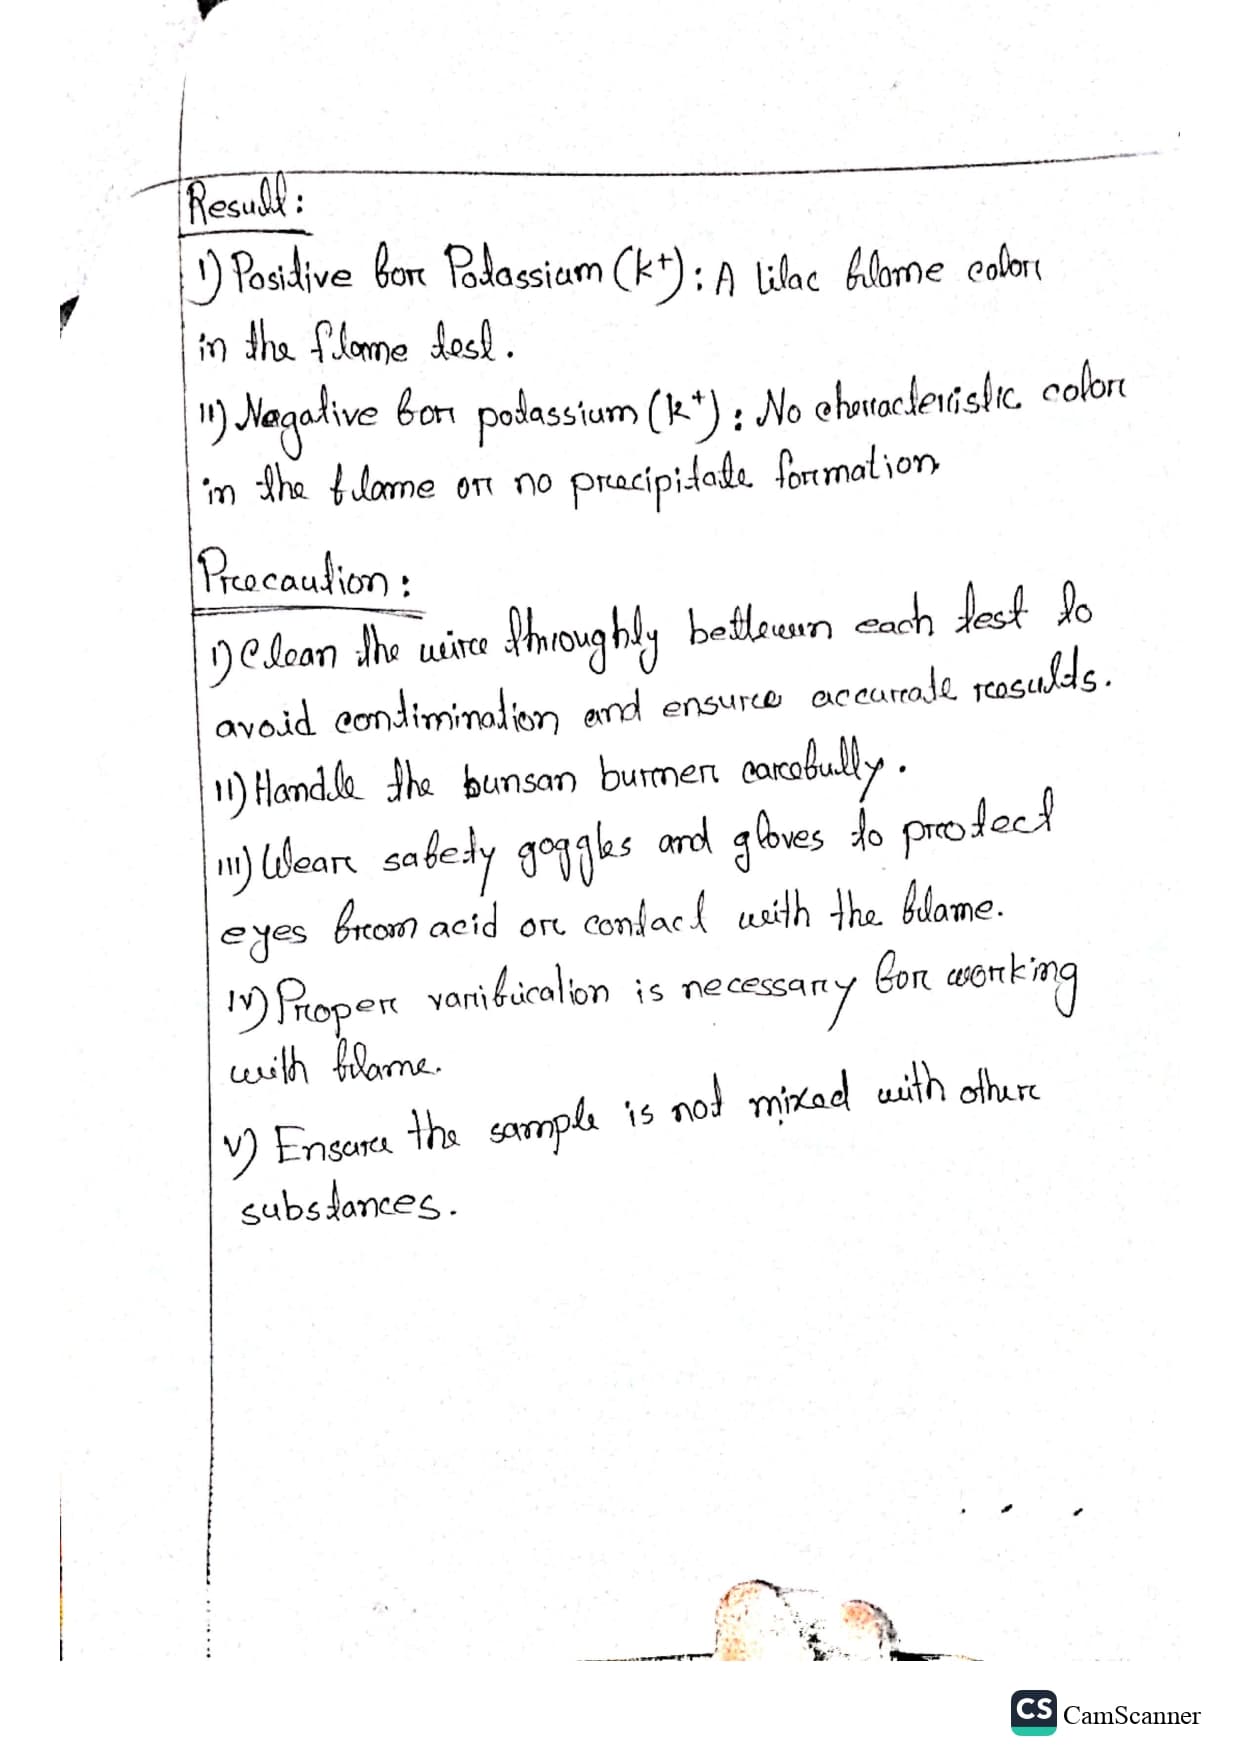 Result:
i) Positive for Potassium (k+): A lilac flame color
in the flame test.
ii) Negative for potassium (k+): No characteristic color
in the flame or no precipitate formation
Precaution:
i) Clean the wire throughly between each test to
avoid contimination and ensure accurate results.
ii) Handle the bunsan burner carefully.
iii) Wear safety goggles and gloves to protect
eyes from acid or contact with the flame.
iv) Proper varification is necessary for working
with flame.
v) Ensure the sample is not mixed with other
substances.
CS CamScanner